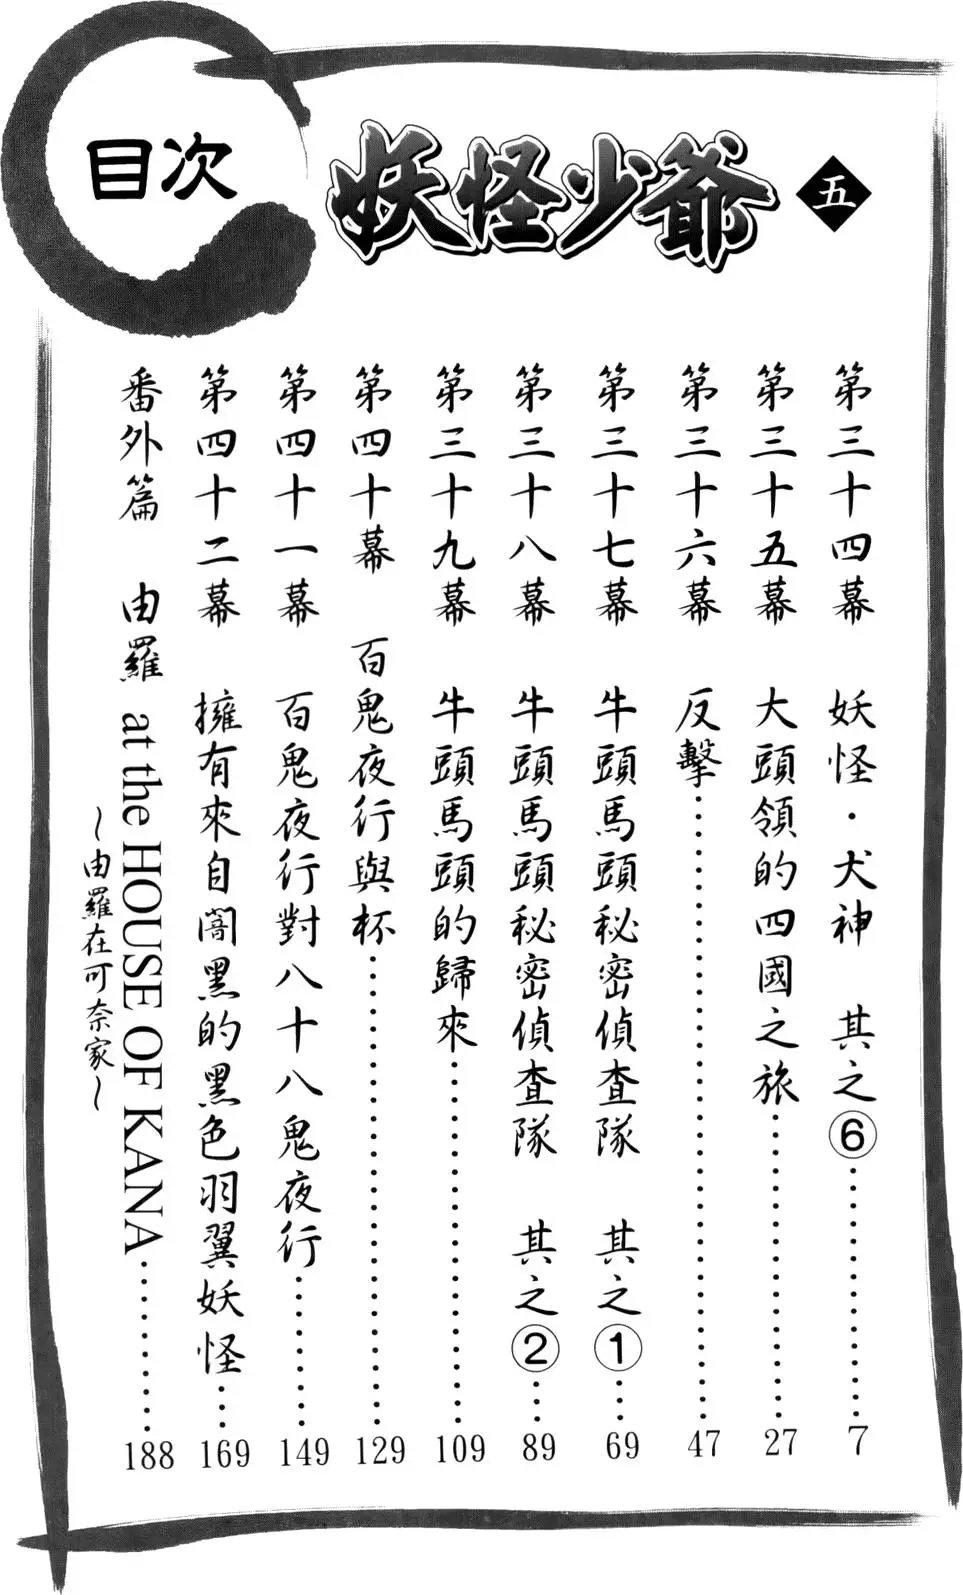 目次
妖怪少爺 五
第三十四幕 妖怪・犬神 其之⑥……………7
第三十五幕 大頭領的四國之旅……………27
第三十六幕 反擊……………47
第三十七幕 牛頭馬頭秘密偵查隊 其之①……69
第三十八幕 牛頭馬頭秘密偵查隊 其之②……89
第三十九幕 牛頭馬頭的歸來……………109
第四十幕 百鬼夜行與杯……………129
第四十一幕 百鬼夜行對八十八鬼夜行………149
第四十二幕 擁有來自闇黑的黑色羽翼妖怪…169
番外篇 由羅 at the HOUSE OF KANA…………188
~由羅在可奈家~